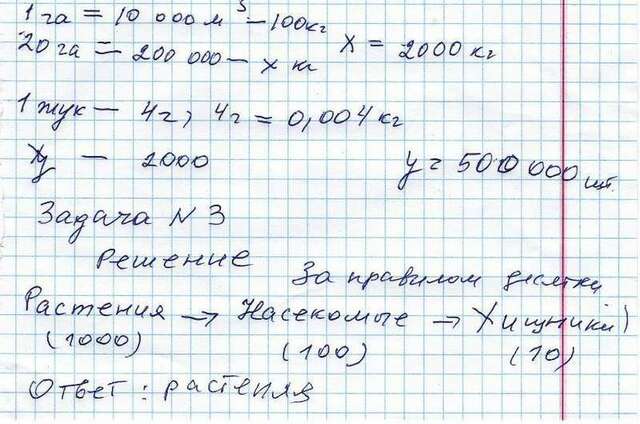 1 га = 10 000 м³ - 100кг
20 га = 200 000 - х кг х = 2000 кг
1 жук - 4г, 4г = 0,004 кг
у - 2000 у = 500 000 шт.
Задача N 3
Решение
За правилом десятки
Растения → Насекомые → Хищники)
(1000) (100) (10)
Ответ: растения